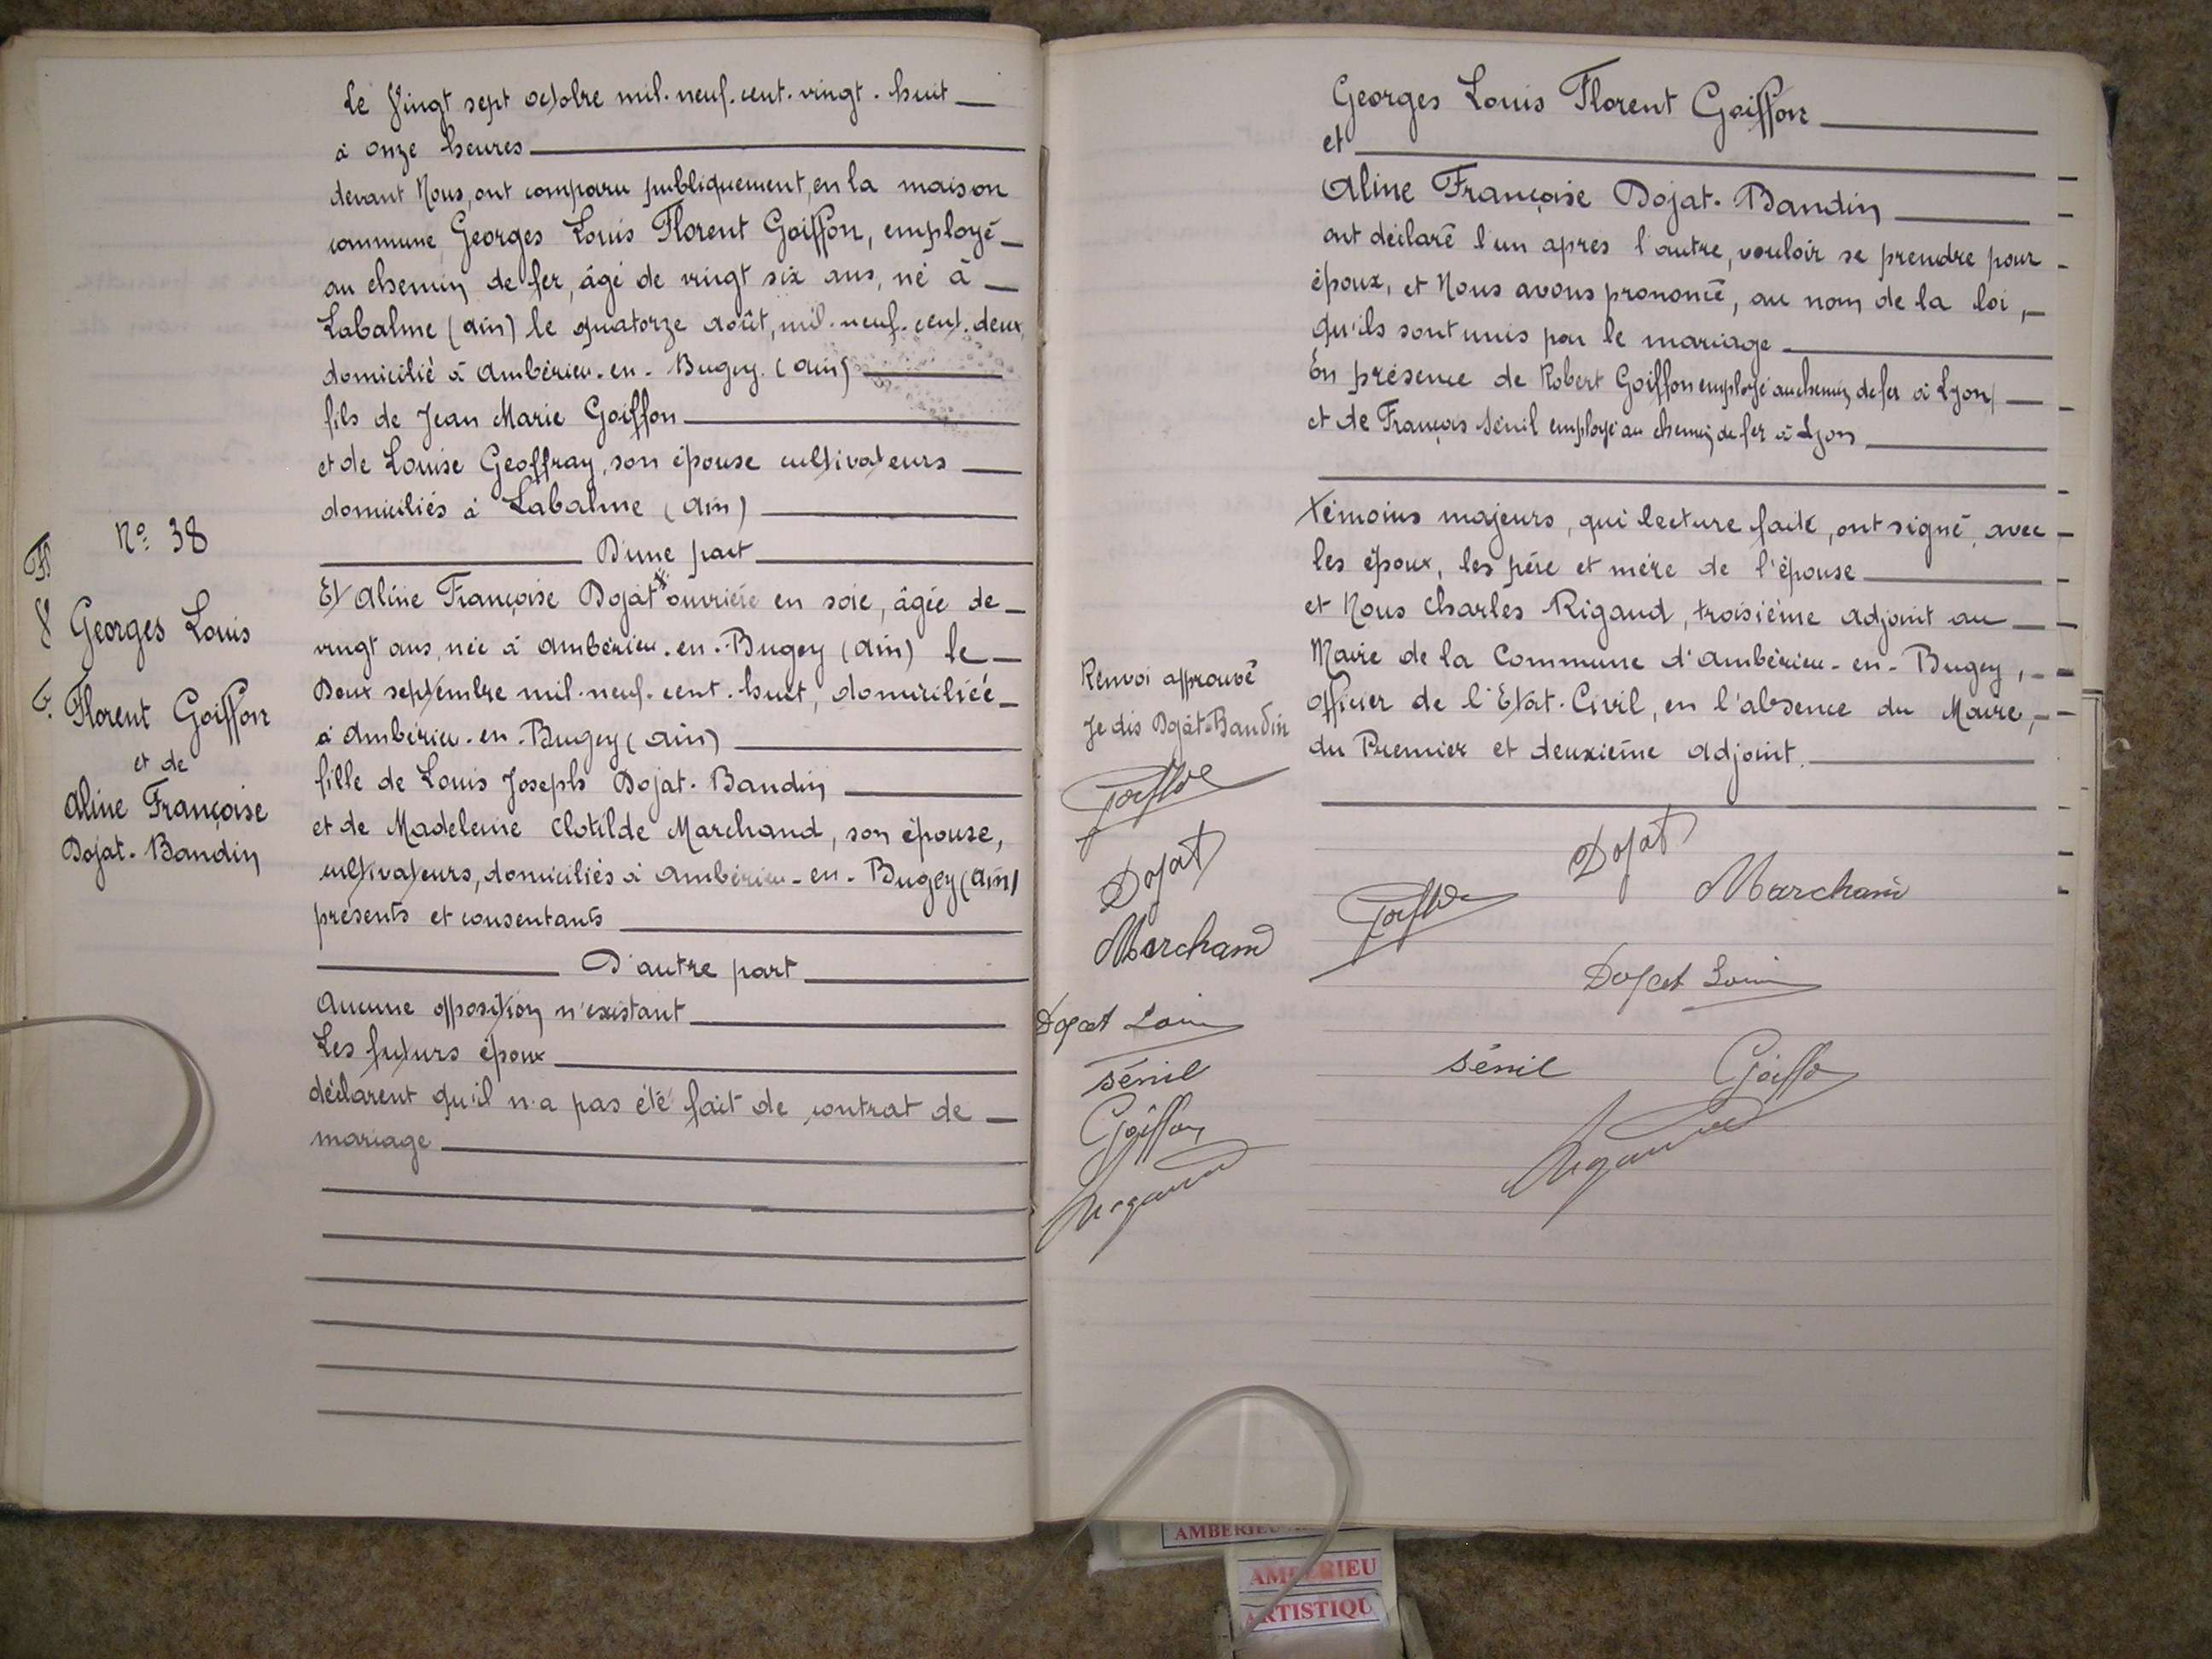 Le Vingt sept octobre mil. neuf. cent. vingt. huit
à onze heures
devant Nous, ont comparu publiquement, en la maison
commune Georges Louis Florent Goiffon, employé
au chemin de fer, âgé de vingt six ans, né à
Labalme (Ain) le quatorze août, mil. neuf. cent. deux,
domicilié à Ambérieu-en-Bugey. (Ain)
fils de Jean Marie Goiffon
et de Louise Geoffray, son épouse cultivateurs
domiciliés à Labalme (Ain)
D'une part
Et Aline Françoise Dojat x ouvrière en soie, âgée de
vingt ans, née à Ambérieu-en-Bugey (Ain) le
Deux septembre mil. neuf. cent. huit, domiciliée
à Ambérieu-en-Bugey (Ain)
fille de Louis Joseph Dojat-Bandin
et de Madeleine Clotilde Marchand, son épouse,
cultivateurs, domiciliés à Ambérieu-en-Bugey (Ain)
présents et consentants
D'autre part
Aucune opposition n'existant
Les futurs époux
déclarent qu'il n'a pas été fait de contrat de
mariage
N° 38
Georges Louis
Florent Goiffon
et de
Aline Françoise
Dojat-Bandin
Georges Louis Florent Goiffon
et
Aline Françoise Dojat-Bandin
ont déclaré l'un après l'autre, vouloir se prendre pour
époux, et Nous avons prononcé, au nom de la loi,
qu'ils sont unis par le mariage
En présence de Robert Goiffon employé au chemin de fer à Lyon
et de François Sénil employé au chemin de fer à Lyon
témoins majeurs, qui lecture faite, ont signé, avec
les époux, les père et mère de l'épouse
et Nous Charles Rigaud, troisième adjoint au
Maire de la Commune d'Ambérieu-en-Bugey,
officier de l'Etat-Civil, en l'absence du Maire,
du Premier et deuxième adjoint.
Renvoi approuvé
Je dis Dojat-Baudin
Goiffon
Dojat
Marchand
Dojat Louis
Sénil
Goiffon
Rigaud
Dojat
Marchand
Goiffon
Dojat Louis
Sénil
Goiffon
Rigaud
AMBERIEU
AMBERIEU
ARTISTIQU